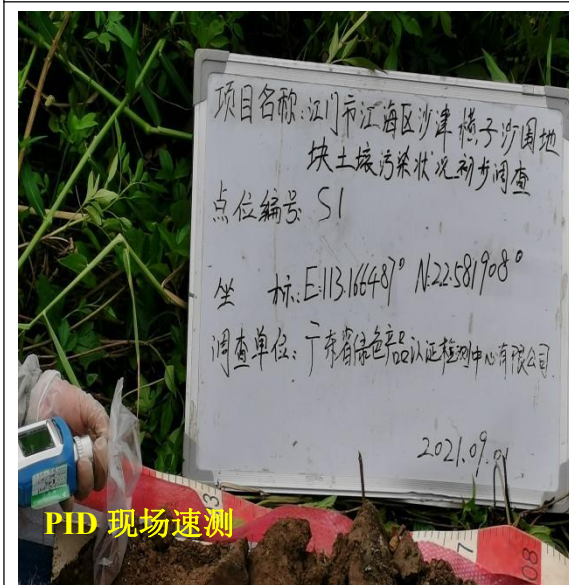 项目名称:江门市江海区沙津横子沙围地
块土壤污染状况初步调查
点位编号: S1
坐 标:E:113.166487° N:22.581908°
调查单位:广东省绿色产品认证检测中心有限公司
2021.09.01
PID 现场速测